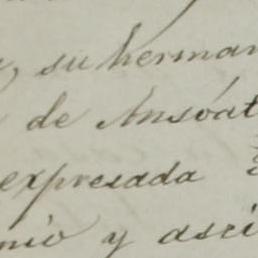 su herman
de Ansóat
expresada
nio y asci